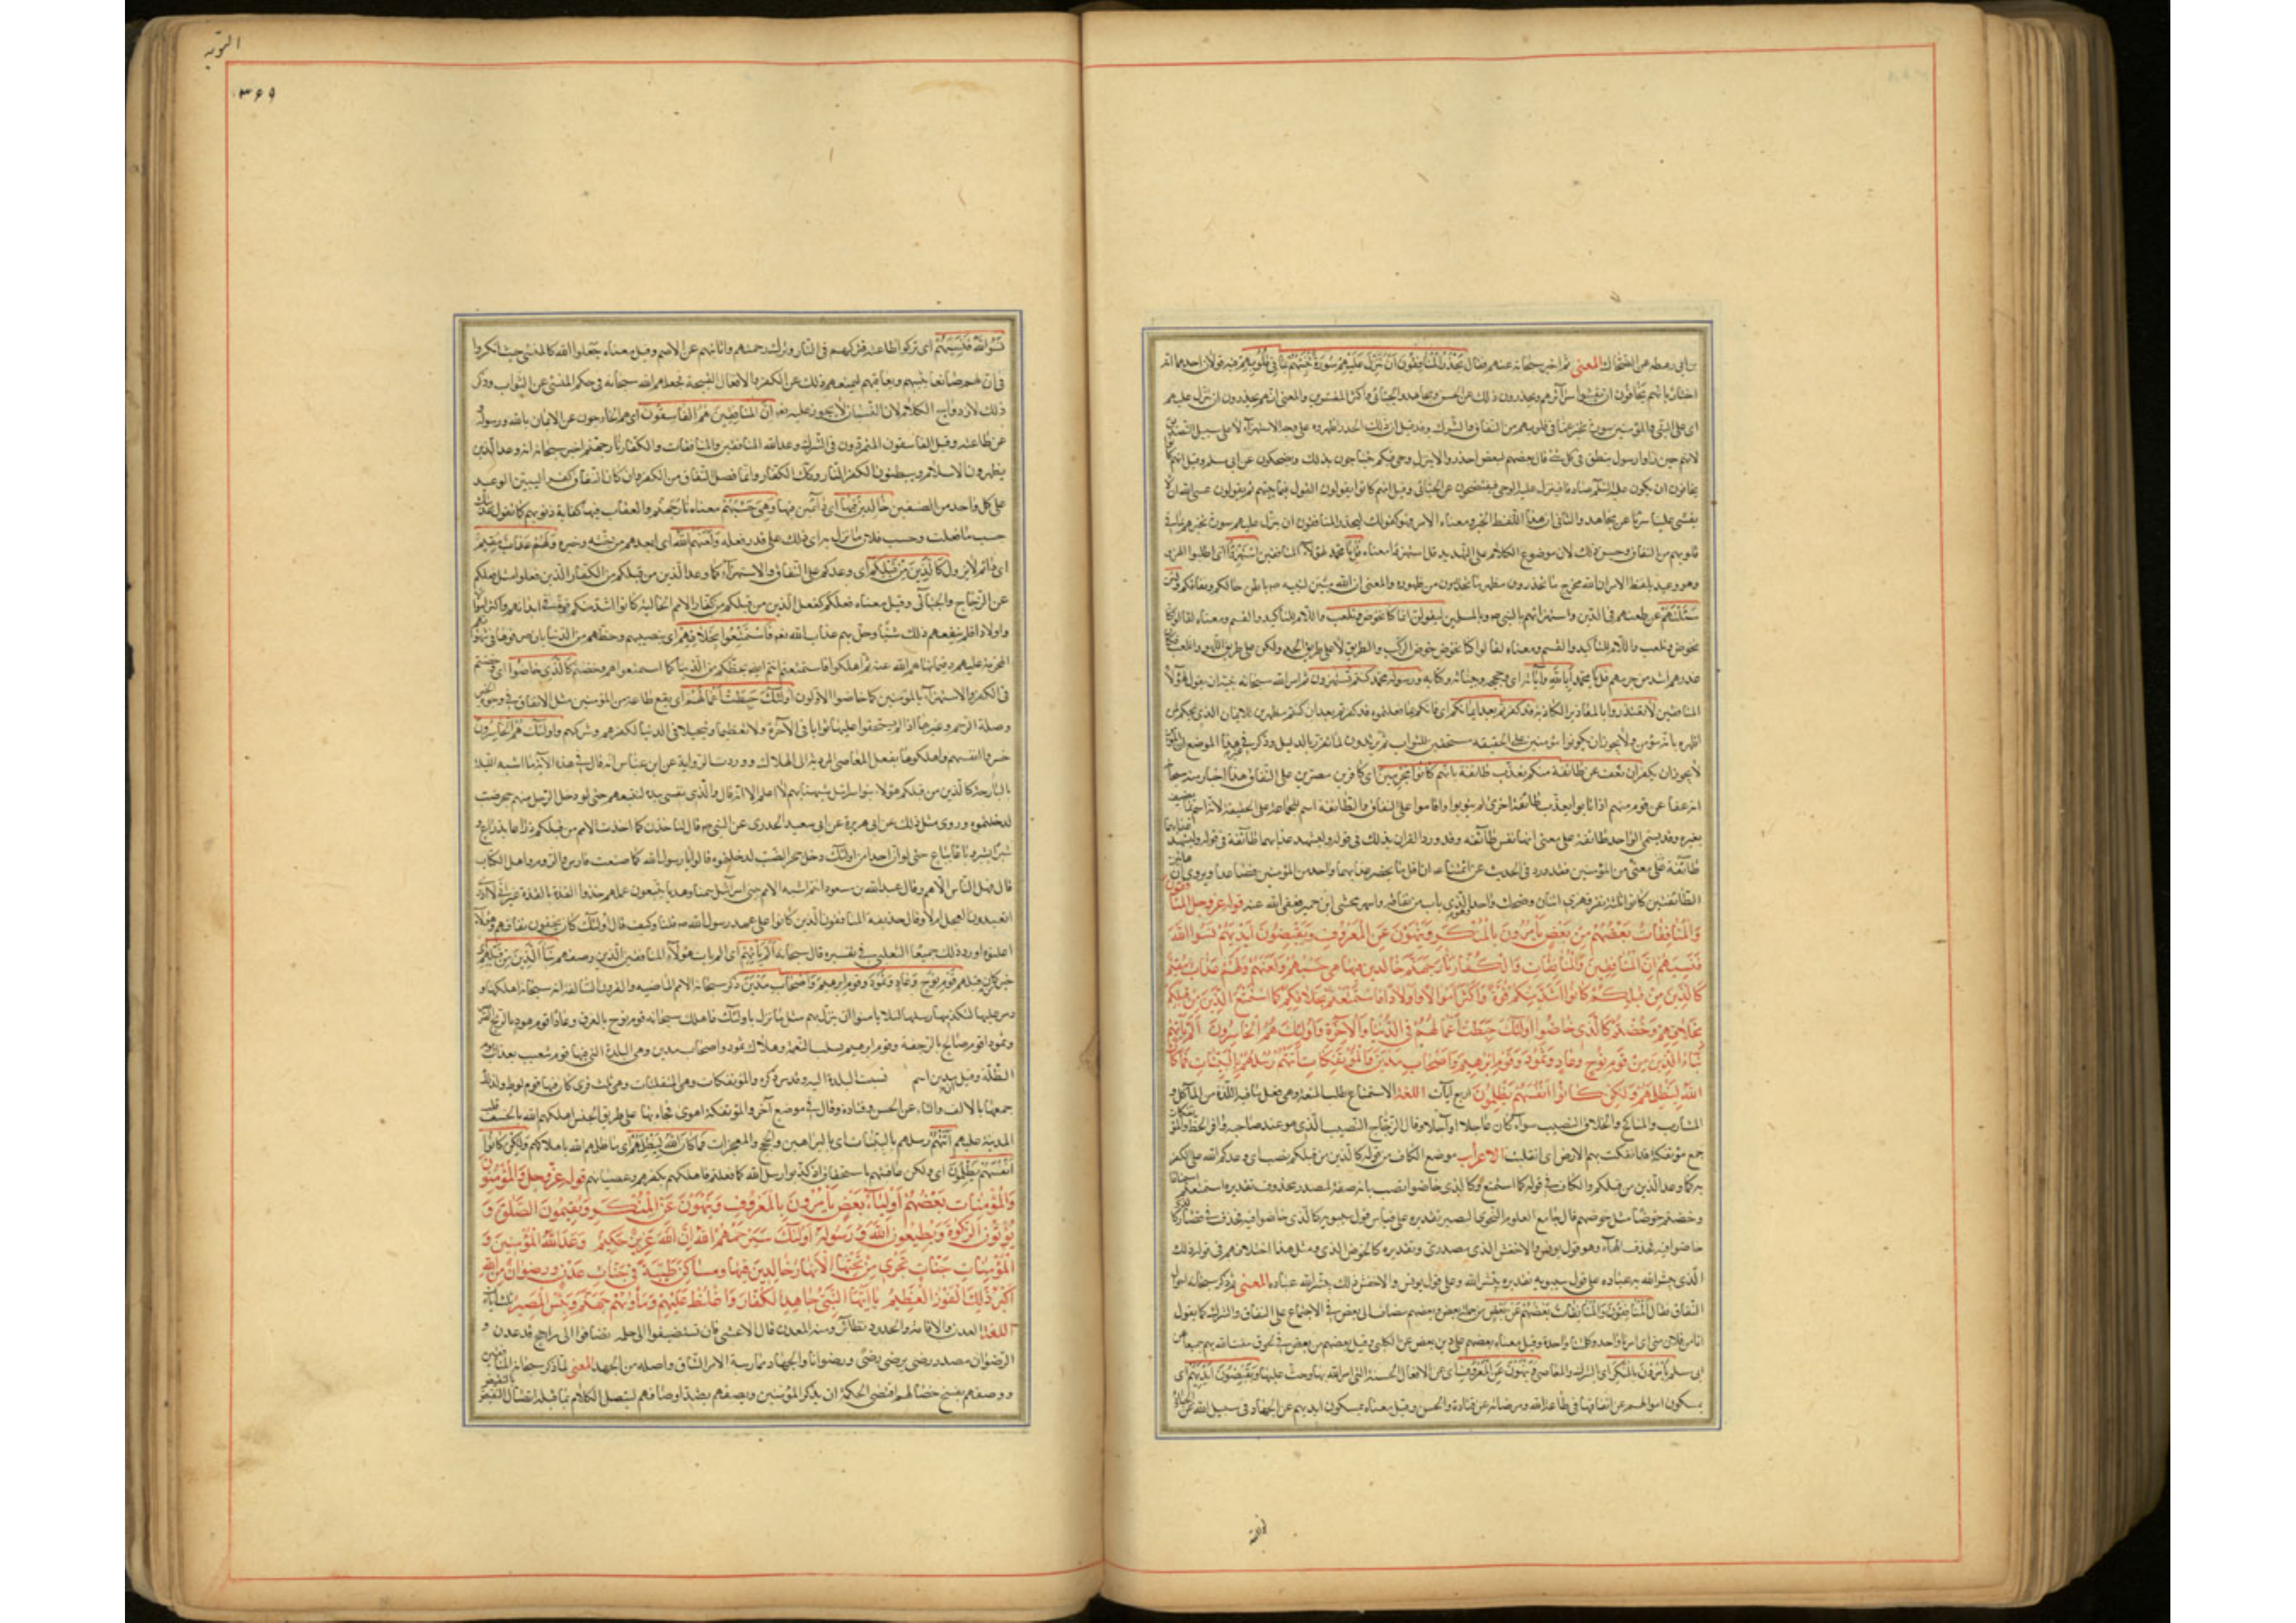 المعنى ثم اخبر سبحانه عنهم فقال يحذر المنافقون ان تنزل عليهم سورة تنبئهم بما في قلوبهم فيه قولان احدهما انه
اخبار بانهم يخافون ان يفشوا سرائرهم ويحذرون ذلك عن الحسن ومجاهد والجبائي واكثر المفسرين والمعنى انهم يحذرون ان تنزل عليهم
اي على النبي والمؤمنين سورة تخبر عما في قلوبهم من النفاق والشرك وقد قيل ان ذلك الحذر اظهروه على وجه الاستهزاء لا على سبيل التصديق
لانهم حين راوا رسول ينطق في كل شئ قال بعضهم لبعض احذروا الا ينزل وحي فيكم يتناجون بذلك ويضحكون عن ابي مسلم وقيل انهم كانوا
يخافون ان يكون عليه السلم صادقا فينزل عليه الوحي فيفتضحون عن الجبائي وقيل انهم كانوا يقولون القول فيما بينهم ثم يقولون عسى الله ان لا
يفشي علينا سرنا عن مجاهد والثاني ان هذا اللفظ الخبر ومعناه الامر فهو كقولك ليحذر المنافقون ان تنزل عليهم سورة تخبرهم بما في
قلوبهم من النفاق وحسن ذلك لان موضوع الكلام على التهديد قل استهزؤا معناه قل يا محمد لهؤلاء المنافقين استهزؤا اي اطلبوا الهزء
وهو وعيد بلفظ الامر ان الله مخرج ما تحذرون مظهر ما تحذرون من ظهوره والمعنى ان الله يبين لنبيه ص باطن حالكم ونفاقكم ولئن
سئلتهم عن طعنهم في الدين واستهزائهم بالنبي ص وبالمسلمين ليقولن انما كنا نخوض ونلعب واللام للتاكيد والقسم ومعناه لقالوا كنا
نخوض ونلعب واللام للتاكيد والقسم ومعناه لقالوا كنا نخوض خوض الركب في الطريق لا على طريق الجد ولكن على طريق اللهو واللعب فكان
عذرهم اشد من جرمهم قل يا محمد ابالله واياته اي حججه وبيناته وكتابه ورسوله محمد كنتم تستهزؤن ثم امر الله سبحانه نبيه ان يقول لهؤلاء
المنافقين لا تعتذروا بالمعاذير الكاذبة قد كفرتم بعد ايمانكم اي فانكم بما فعلتموه قد كفرتم بعد ان كنتم مظهرين للايمان الذي يحكم لمن
اظهره بانه مؤمن ولا يجوز ان يكونوا مؤمنين على الحقيقه مستحقين للثواب ثم يرتدون لما تقرر بالدليل وذكر في غير هذا الموضع ان المؤمن
لا يجوز ان يكفر ان نعف عن طائفة منكم نعذب طائفة بانهم كانوا مجرمين اي كافرين مصرين على النفاق هذا اخبار منه سبحانه
انه عفا عن قوم منهم اذا تابوا يعذب طائفة اخرى لم يتوبوا واقاموا على النفاق والطائفة اسم للجماعة على الحقيقة لانه اسم لما يطيف
بغيره وقد يسمى الواحد طائفة على معنى انها نفس طائفة وقد ورد القران بذلك في قوله وليشهد عذابهما طائفة
طائفة على معنى من المؤمنين فقد ورد في الحديث عن ائمتنا ع ان اقل ما يحضر عذابهما واحد من المؤمنين فصاعدا ويروى ان هاتين
الطائفتين كانوا ثلثة نفر فهزئ اثنان وضحك واحد وهو الذي تاب من نفاقه واسمه مخشي ابن حمير فعفى الله عنه قوله عز وجل المنافقون
والمنافقات بعضهم من بعض يأمرون بالمنكر وينهون عن المعروف ويقبضون ايديهم نسوا الله
فنسيهم ان المنافقين والمنافقات والكفار نار جهنم خالدين فيها هي حسبهم ولعنهم ولهم عذاب مقيم
كالذين من قبلكم كانوا اشد منكم قوة واكثر اموالا واولادا فاستمتعتم بخلاقكم كما استمتع الذين من قبلكم
بخلاقهم وخضتم كالذي خاضوا اولئك حبطت اعمالهم في الدنيا والاخرة واولئك هم الخاسرون الم يأتهم
نباء الذين من قوم نوح وعاد وثمود وقوم ابرهيم واصحاب مدين والمؤتفكات اتتهم رسلهم بالبينات فما كان
الله ليظلمهم ولكن كانوا انفسهم يظلمون اربع آيات اللغة الاستمتاع طلب المتعة وهي فعل ما فيه اللذة من المآكل و
المشارب والمناكح والخلاق النصيب سواء كان عاجلا او آجلا وقال الزجاج النصيب الذي هو عند صاحبه وافي الحظ والمؤتفكات
جمع مؤتفكة قد ائتفكت بهم الارض اي انقلبت الاعراب موضع الكاف من قوله كالذين من قبلكم نصب اي وعدكم الله على الكفر
به كما وعد الذين من قبلكم والكاف في قوله كما استمتع وكالذي خاضوا نصب بانه صفة لمصدر محذوف تقديره استمتعتم استمتاعا
وخضتم خوضا مثل خوضهم قال جامع العلوم النحوي البصير تقديره على قياس قول سيبويه كالذي خاضوا فيه فحذف في فصار كالذي
خاضوا فيه فحذف الهاء وهو قول يونس والاخفش الذي مصدري وتقديره كالخوض الذي ومثل هذا اختلافهم في قوله ذلك
الذي يبشر الله به عباده على قول سيبويه تقديره يبشر الله وعلى قول يونس والاخفش ذلك يبشر الله عباده المعنى ثم ذكر سبحانه احوال
النفاق فقال المنافقون والمنافقات بعضهم من بعض اي بعضهم مضاف الى بعض في الاجتماع على النفاق والشرك كما يقول
انا من فلان مني اي امرنا واحد وكلمتنا واحدة وقيل معناه بعضهم على دين بعض عن الكلبي وقيل بعضهم من بعض في لحوق مقت الله بهم جميعا عن
ابي مسلم يأمرون بالمنكر اي الشرك والمعاصي وينهون عن المعروف اي عن الافعال الحسنة التي امر الله بها وحث عليها ويقبضون ايديهم اي
يمسكون اموالهم عن انفاقها في طاعة الله ومرضاته عن قتادة والحسن وقيل معناه يمسكون ايديهم عن الجهاد في سبيل الله عن الجبائي
التوبه
۳۶۹
نسوا الله فنسيهم اي تركوا طاعته فتركهم في النار وترك رحمتهم واثابتهم عن الاصم وقيل معناه جعلوا الله كالمنسي حيث لم يتفكروا
في ان لهم صانعا يثيبهم ويعاقبهم ليمنعهم ذلك عن الكفر والافعال القبيحة فجعلهم الله سبحانه في حكم المنسي عن الثواب وذكر
ذلك لازدواج الكلام لان النسيان لا يجوز عليه تعم ان المنافقين هم الفاسقون اي هم الخارجون عن الايمان بالله ورسوله و
عن طاعته وقيل الفاسقون المتمردون في الشرك وعد الله المنافقين والمنافقات والكفار نار جهنم اخبر سبحانه انه وعد الذين
يظهرون الاسلام ويبطنون الكفر النار وكذلك الكفار وانما فصل النفاق من الكفر وان كان النفاق كفرا ليبين الوعيد
على كل واحد من الصنفين خالدين فيها اي دائمين فيها وهي حسبهم معناه نار جهنم والعقاب فيها كفاية ذنوبهم كما تقول عذبتك
حسب ما فعلت وحسب فلان ما نزل به اي ذلك على قدر فعله ولعنهم الله اي ابعدهم من جنته وخيره ولهم عذاب مقيم
اي دائم لا يزول كالذين من قبلكم اي وعدكم على النفاق والاستهزاء كما وعد الذين من قبلكم من الكفار الذين فعلوا مثل فعلكم
عن الزجاج والجبائي وقيل معناه فعلكم كفعل الذين من قبلكم من كفار الامم الخالية كانوا اشد منكم قوة في ابدانهم واكثر اموالا
واولادا فلم ينفعهم ذلك شيئا وحل بهم عذاب الله تعم فاستمتعوا بخلاقهم اي بنصيبهم وحظهم من الدنيا بان صرفوها في شهواتهم
المحرمة عليهم وفيما نهاهم الله عنه ثم اهلكوا فاستمتعتم انتم ايضا بحظكم من الدنيا كما استمتعوا هم وخضتم كالذي خاضوا اي وخضتم
في الكفر والاستهزاء بالمؤمنين كما خاضوا الاولون اولئك حبطت اعمالهم اي يقع طاعة من المؤمنين مثل الانفاق في وجوه الخير
وصلة الرحم وغيرها اذا لم يستحقوا عليها ثوابا في الآخرة ولا تعظيما وتبجيلا في الدنيا لكفرهم وشركهم واولئك هم الخاسرون
خسروا انفسهم واهلكوها بفعل المعاصي المؤدية الى الهلاك ووردت الرواية عن ابن عباس انه قال في هذه الآية ما اشبه الليلة
بالبارحة كالذين من قبلكم هؤلاء بنو اسرائيل شبهنا بهم لا اعلم الا انه قال والذي نفسي بيده لتتبعنهم حتى لو دخل الرجل منهم جحر ضب
لدخلتموه وروى مثل ذلك عن ابي هريرة عن ابي سعيد الخدري عن النبي ص قال لتاخذن كما اخذت الامم من قبلكم ذراعا بذراع و
شبرا بشبر وباعا بباع حتى لو ان احدا من اولئك دخل جحر الضب لدخلتموه قالوا يا رسول الله كما صنعت فارس والروم واهل الكتاب
قال فهل الناس الا هم وقال عبد الله بن مسعود انتم اشبه الامم ببني اسرائيل سمتا وهديا تتبعون عملهم حذو القذة بالقذة غير اني لا ادري
اتعبدون العجل ام لا وقال حذيفة المنافقون الذين كانوا على عهد رسول الله ص قلنا وكيف قال اولئك كانوا يخفون نفاقهم وهؤلاء
اعلنوه اورد ذلك جميعا الثعلبي في تفسيره قال سبحانه الم يأتهم اي الم يات هؤلاء المنافقين الذين وصفهم نبأ الذين من قبلهم
خبر من كان قبلهم قوم نوح وعاد وثمود وقوم ابرهيم واصحاب مدين ذكر سبحانه الامم الماضيه والقرون السالفة انه سبحانه اهلكها و
دمر عليها لتكذيبها رسلها لئلا يامنوا ان ينزل بهم مثل ما نزل باولئك فاهلك سبحانه قوم نوح بالغرق وعادا قوم هود بالريح الصرصر
وثمود قوم صالح بالرجفة وقوم ابرهيم بسلب النعمة وهلاك نمرود واصحاب مدين وهي البلدة التي فيها قوم شعيب بعذاب يوم
الظلة وقيل مدين اسم نسبت البلدة اليه وقد مر ذكره والمؤتفكات وهي المنقلبات وهي ثلث قرى كان فيها قوم لوط ولذلك
جمعها بالالف والتاء عن الحسن وقتادة وقال في موضع آخر والمؤتفكة اهوى فجاء بها على طريق الجنس اهلكهم الله بالخسف وقلب
المدينة عليهم اتتهم رسلهم بالبينات اي بالبراهين والحجج والمعجزات فما كان الله ليظلمهم اي ما ظلمهم الله باهلاكهم ولكن كانوا
انفسهم يظلمون اي ولكن عاقبهم باستحقاق اذ كذبوا رسل الله كما فعلتم فاهلكهم بكفرهم وعصيانهم قوله عز وجل والمؤمنون
والمؤمنات بعضهم اولياء بعض يأمرون بالمعروف وينهون عن المنكر ويقيمون الصلوة و
يؤتون الزكوة ويطيعون الله ورسوله اولئك سيرحمهم الله ان الله عزيز حكيم وعد الله المؤمنين و
المؤمنات جنات تجري من تحتها الانهار خالدين فيها ومساكن طيبة في جنات عدن ورضوان من الله
اكبر ذلك الفوز العظيم يا ايها النبي جاهد الكفار واغلظ عليهم ومأويهم جهنم وبئس المصير ثلث آيات
اللغة العدن والاقامة والخلود نظائر ومنه المعدن قال الاعشى فان تستضيفوا الى حلمه تضافوا الى راجح قد عدن و
الرضوان مصدر رضي يرضى رضى ورضوانا والجهاد ممارسة الامر الشاق واصله من الجهد المعنى لما ذكر سبحانه المنافقين
ووصفهم بقبيح خصالهم اقتضى الحكمة ان يذكر المؤمنين ويصفهم بضد اوصافهم ليتصل الكلام بما قبله اتصال النقيض بالنقيض